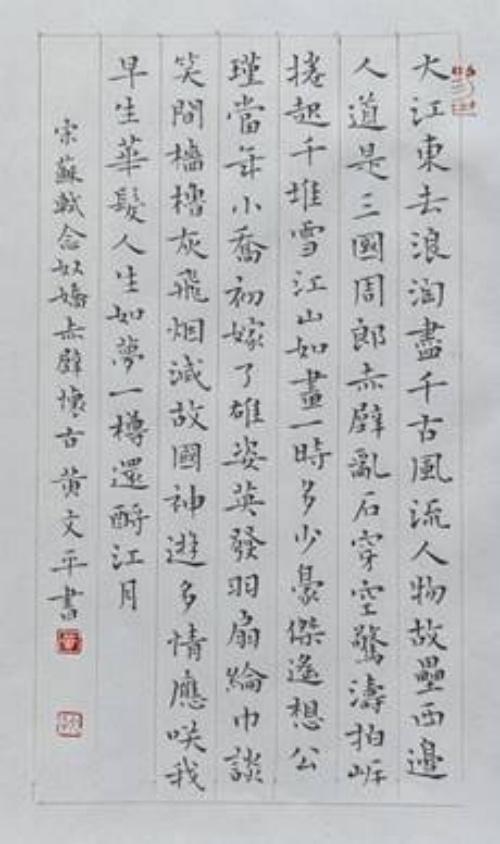 大江東去浪淘盡千古風流人物故壘西邊
人道是三國周郎赤壁亂石穿空驚濤拍岸
捲起千堆雪江山如畫一時多少豪傑遙想公
瑾當年小喬初嫁了雄姿英發羽扇綸巾談
笑間檣櫓灰飛烟滅故國神遊多情應咲我
早生華髮人生如夢一樽還酹江月
宋蘇軾念奴嬌赤壁懷古黄文平書